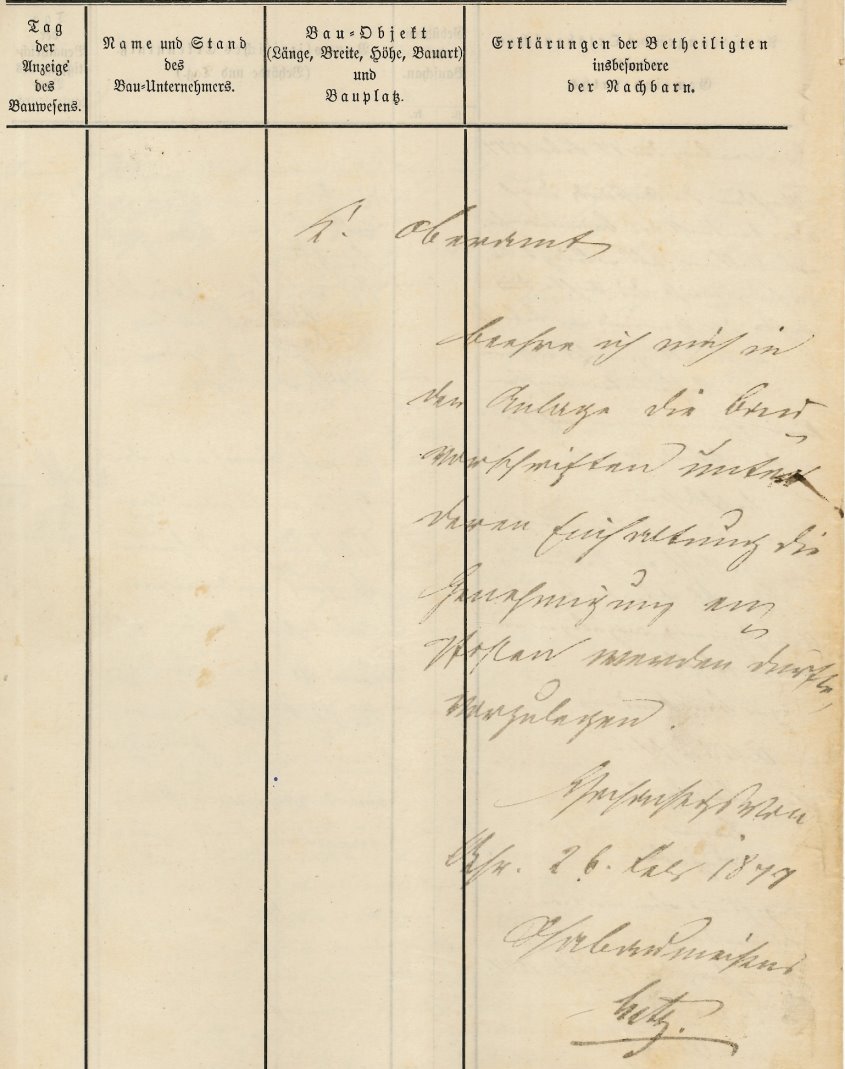 Tag
der
Anzeige
des
Bauwesens.
Name und Stand
des
Bau-Unternehmers.
Bau-Objekt
(Länge, Breite, Höhe, Bauart)
und
Bauplatz.
Erklärungen der Betheiligten
insbesondere
der Nachbarn.
K. Oberamt
beehre ich mich in
der Anlage die Bau
vorschriften unter
deren Einhaltung die
Genehmigung
werden dürfte,
vorzulegen.
26. 1877
Oberamtsbaumeister